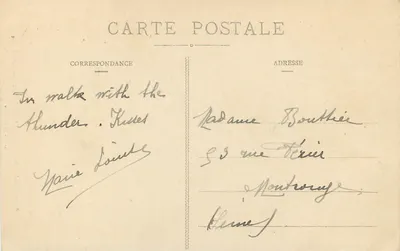 CARTE POSTALE
CORRESPONDANCE
ADRESSE
In walk with the
thunder. Kisses
Marie Louise
Madame Bouthier
53 rue Périer
Montrouge
(Seine)